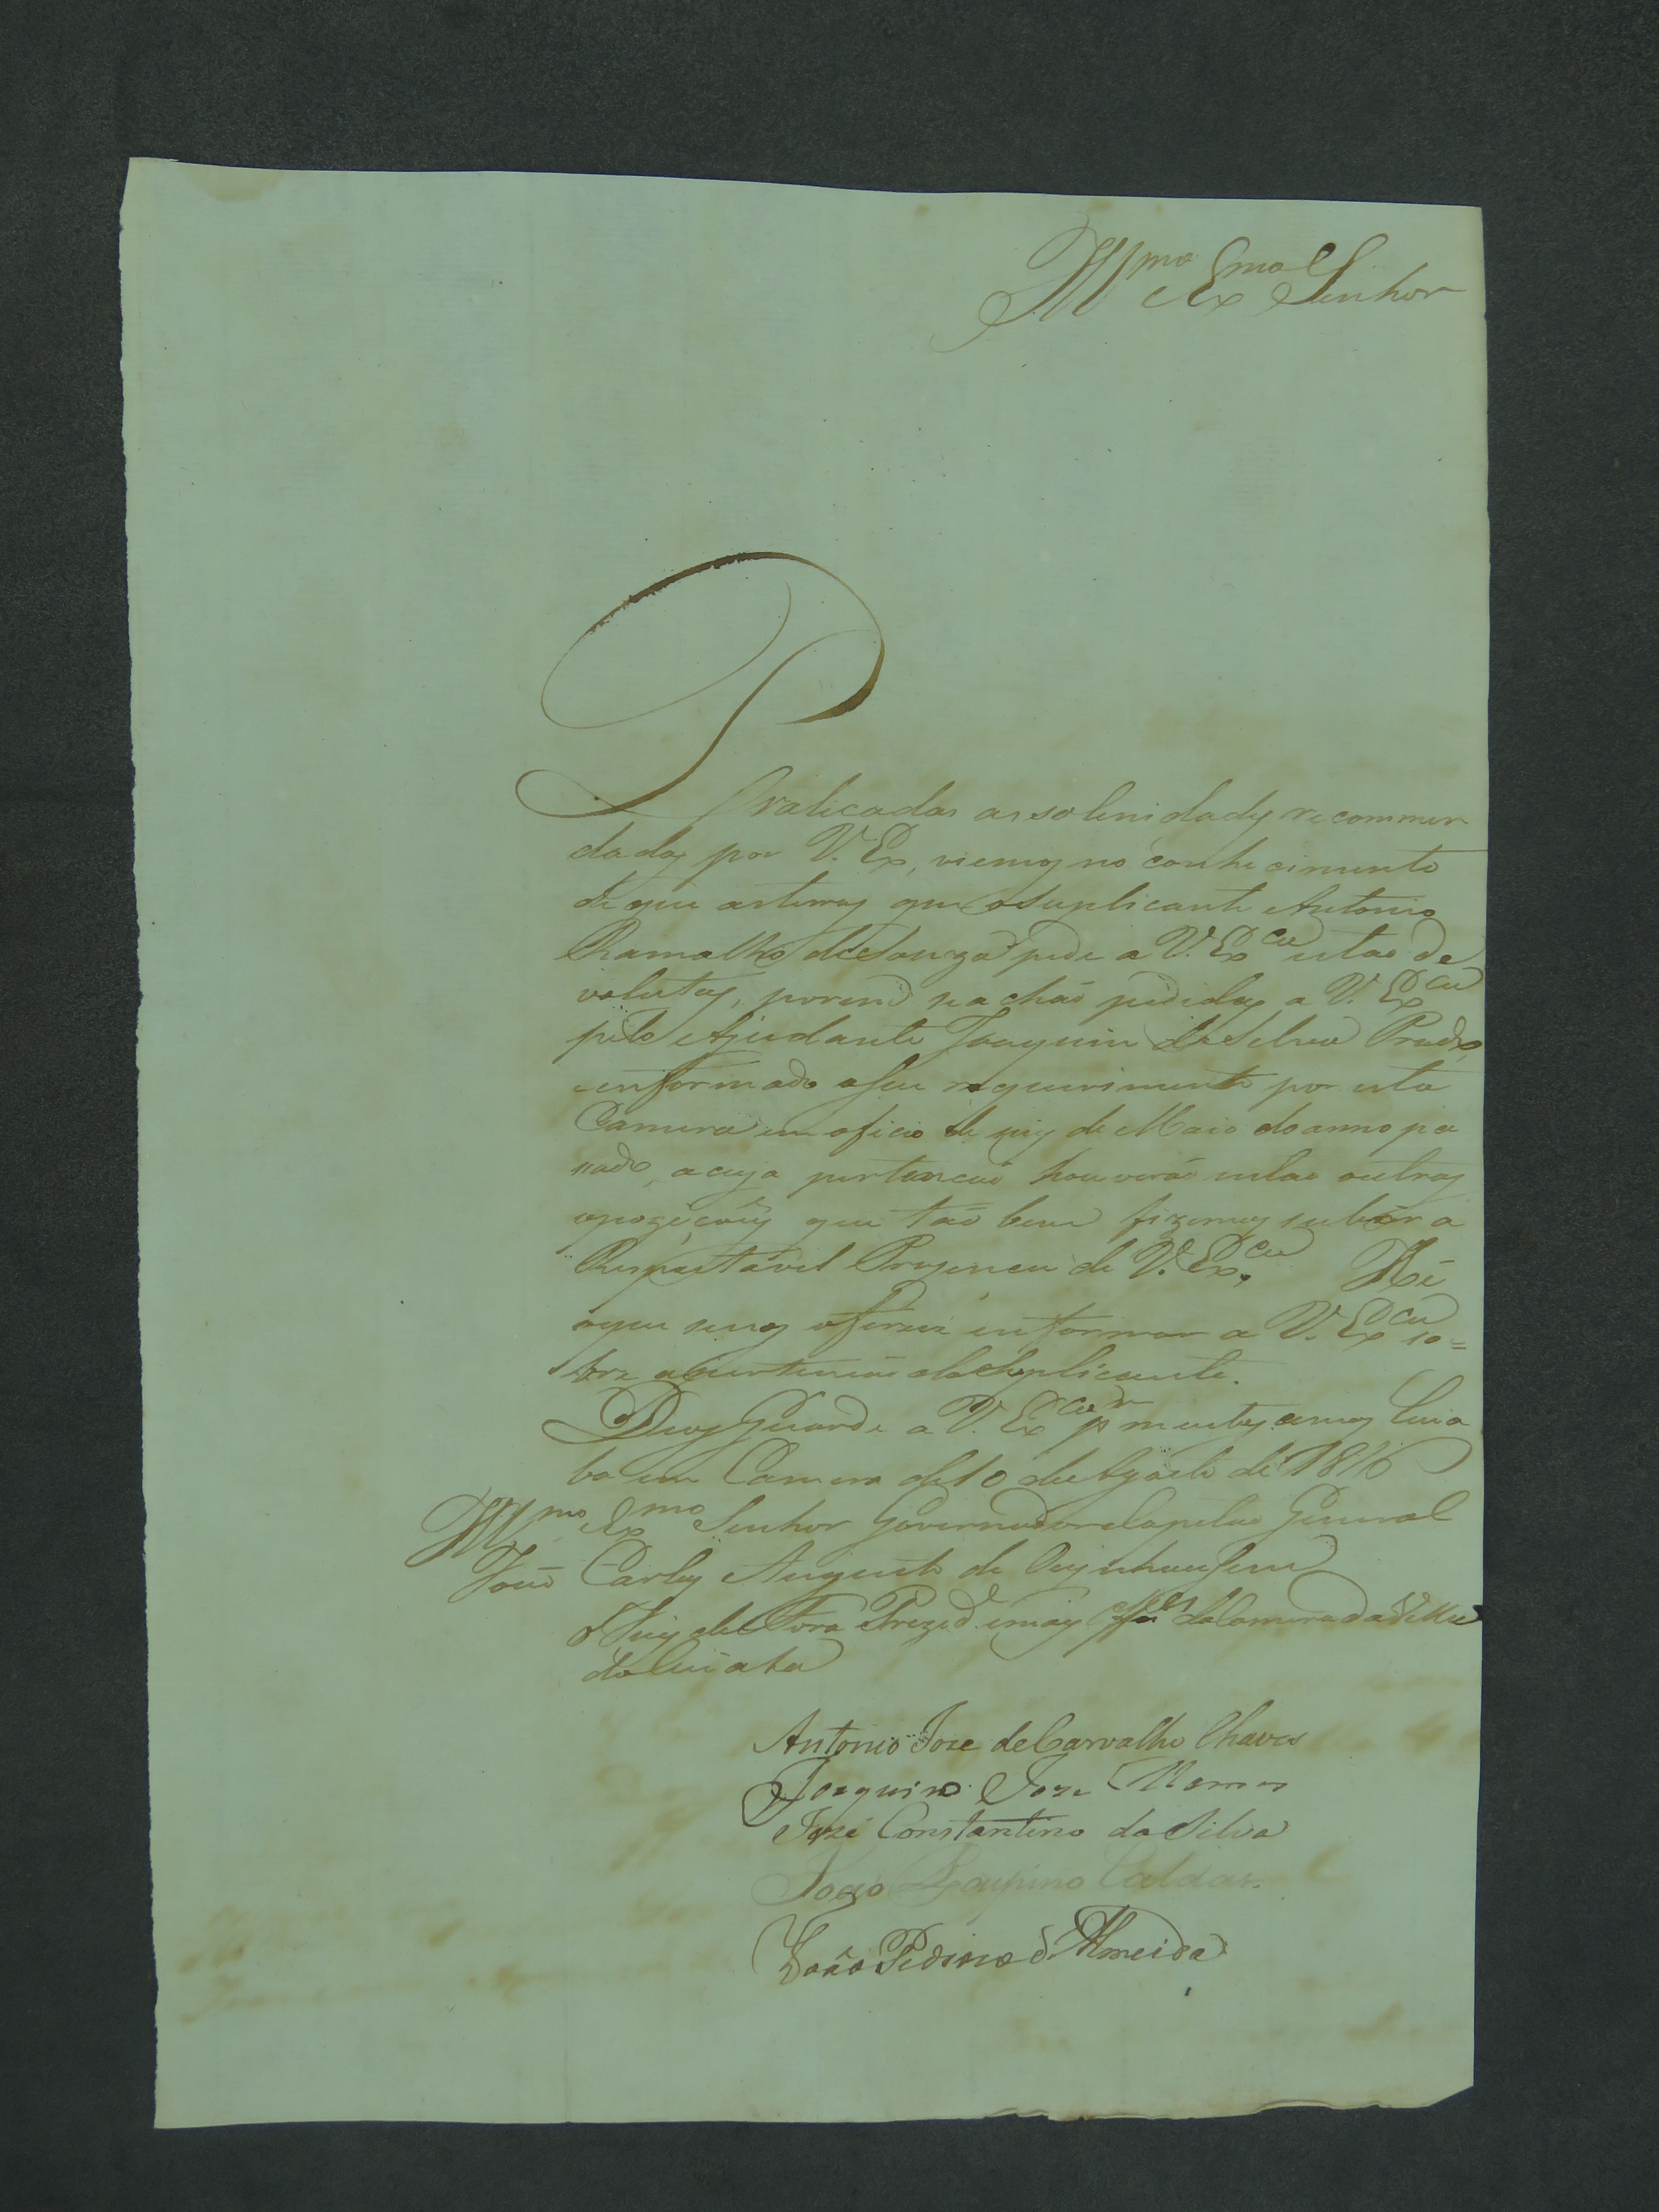 Ill.mo Ex.mo Senhor
Praticadas as solenidades recommen
dadas por V. Ex, viemos no conhecimento
de que as terras que o Suplicante Antonio
Ramalho de Souza pede a V. Ex.cia estao de
volutas, porem se achaõ pedidas a V. Ex.cia
pelo Ajudante Joaquim da Silva Prado,
e informado o seu requerimento por esta
Camera em oficio de de Maio do anno pa
sado, a cuja pertençaõ houveraõ entao outras
opoziçoẽs que taõ bem fizemos subir a
Respeitavel Prezença de V. Ex.cia He
o que se nos oferece informar a V. Ex.cia so=
bre a pertençaõ do Suplicante.
Deos Guarde a V. Ex.cia p.r muitos annos Cuia
ba em Camera de 10 de Agosto de 1816
Ill.mo Ex.mo Senhor Governador e Capitao General
Joaõ Carlos Augusto de Oeynhausem
o Juiz de Fora Prezid.e e mais Off.es da Camera da Villa
do Cuiaba
Antonio Joze de Carvalho Chaves
Joaquim Joze Ramos
Jozé Constantino da Silva
Joaõ Poupino Caldas.
Joaõ Pedrozo d'Almeida